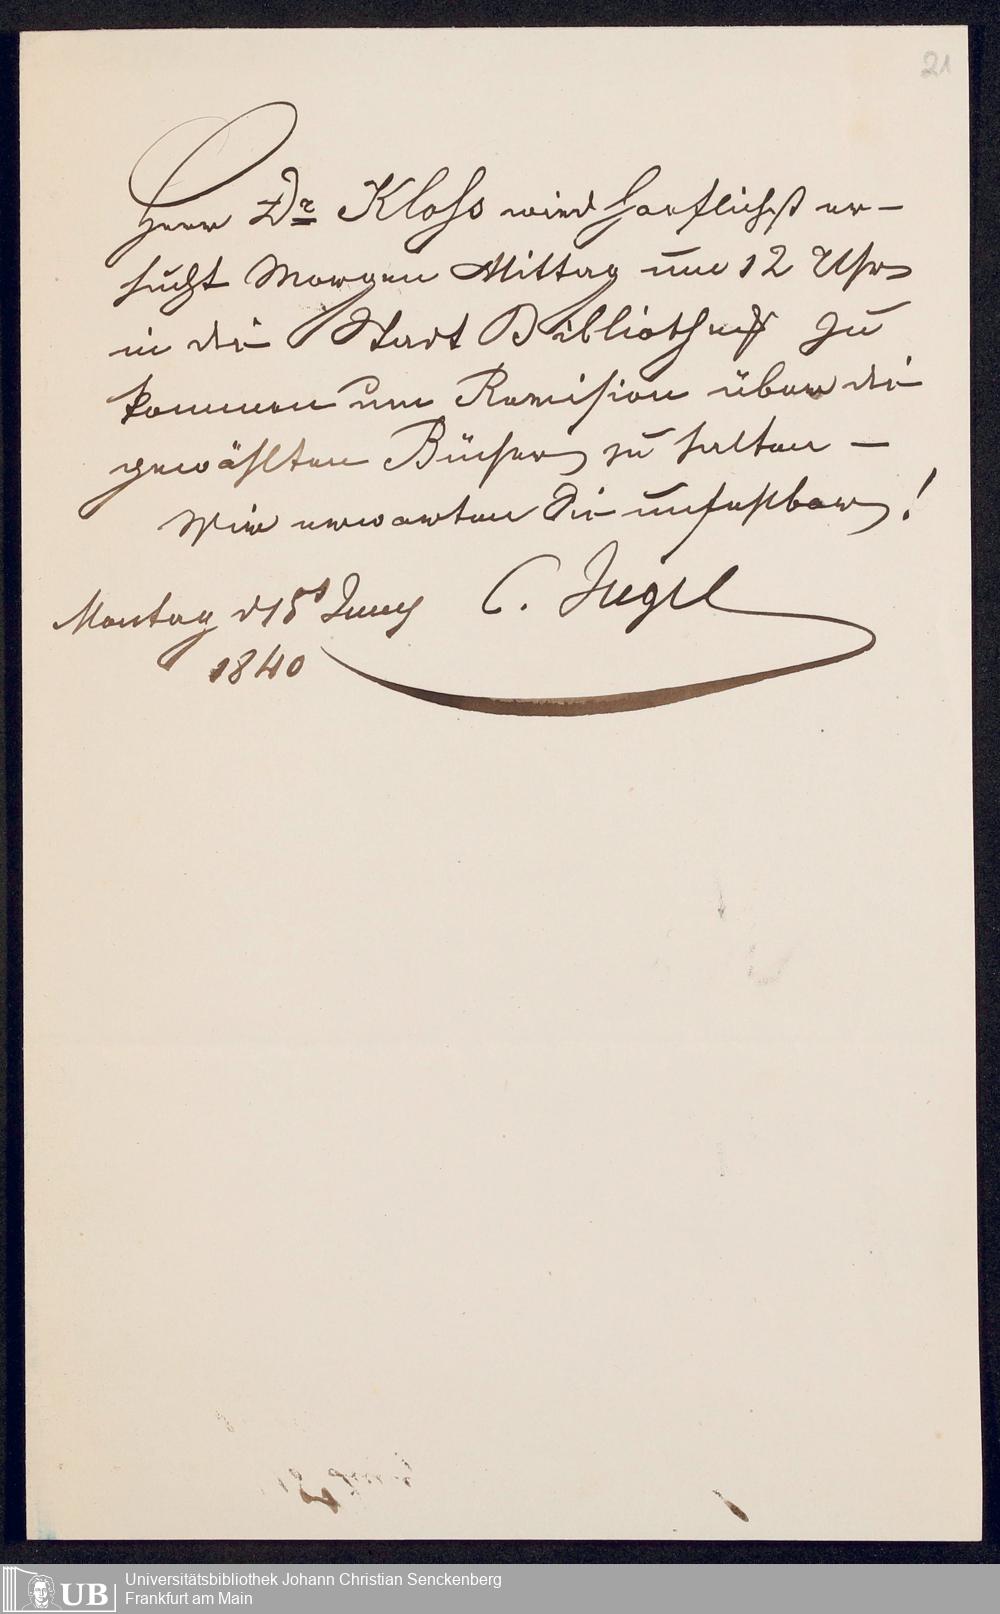 21
Herr Dr Kloss wird hoeflichst er-
sucht Morgen Mittag um 12 Uhr
in die Stadt Bibliothek zu
kommen um Revision über die
gewählten Bücher zu halten -
Wir erwarten Sie unfehlbar!
Montag d 15t Juny C. Jügel
1840
UB
Universitätsbibliothek Johann Christian Senckenberg
Frankfurt am Main